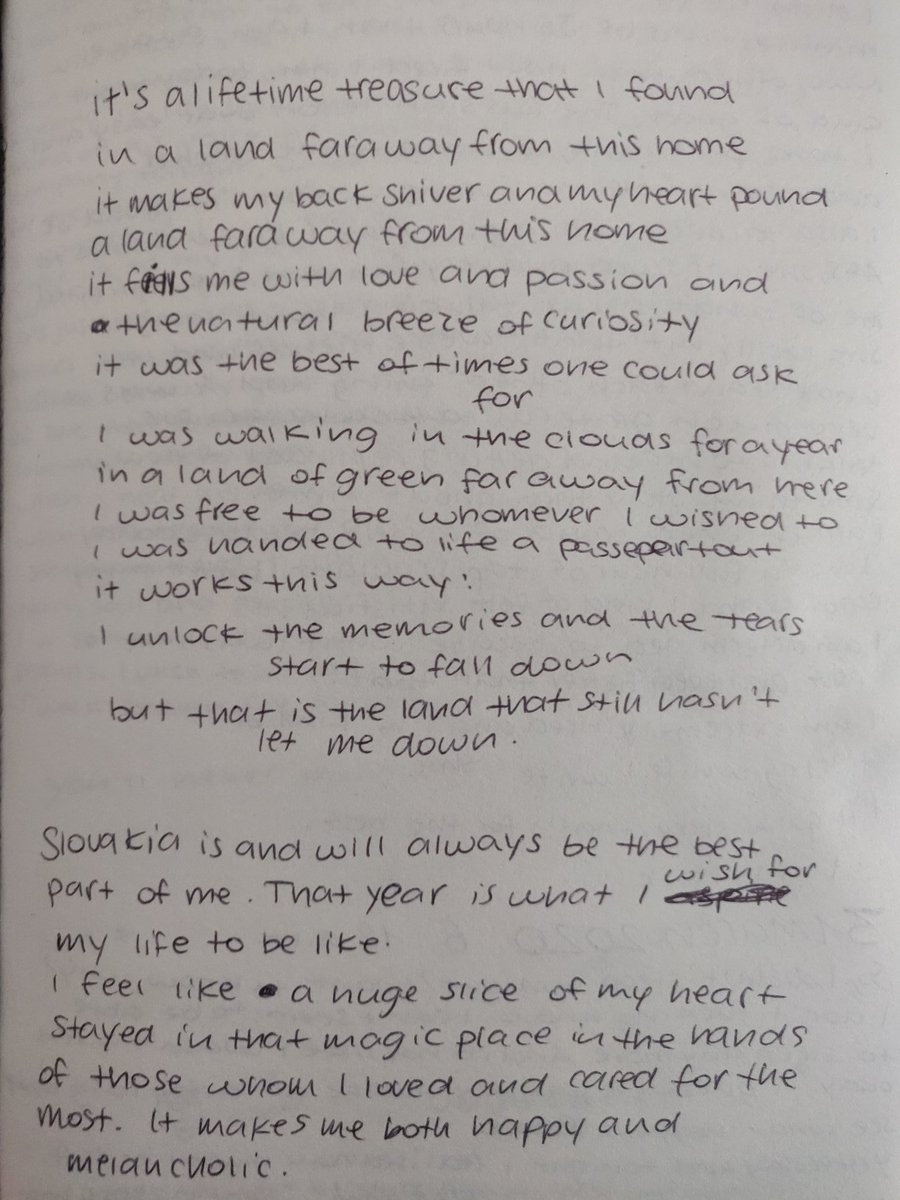 it's a lifetime treasure that I found
in a land faraway from this home
it makes my back shiver and my heart pound
a land faraway from this home
it fills me with love and passion and
the natural breeze of curiosity
it was the best of times one could ask
for
I was walking in the clouds for a year
in a land of green far away from here
I was free to be whomever I wished to
I was handed to life a passepartout
it works this way:
I unlock the memories and the tears
start to fall down
but that is the land that still hasn't
let me down.
Slovakia is and will always be the best
part of me. That year is what I wish for
my life to be like.
I feel like a huge slice of my heart
stayed in that magic place in the hands
of those whom I loved and cared for the
most. It makes me both happy and
melancholic.